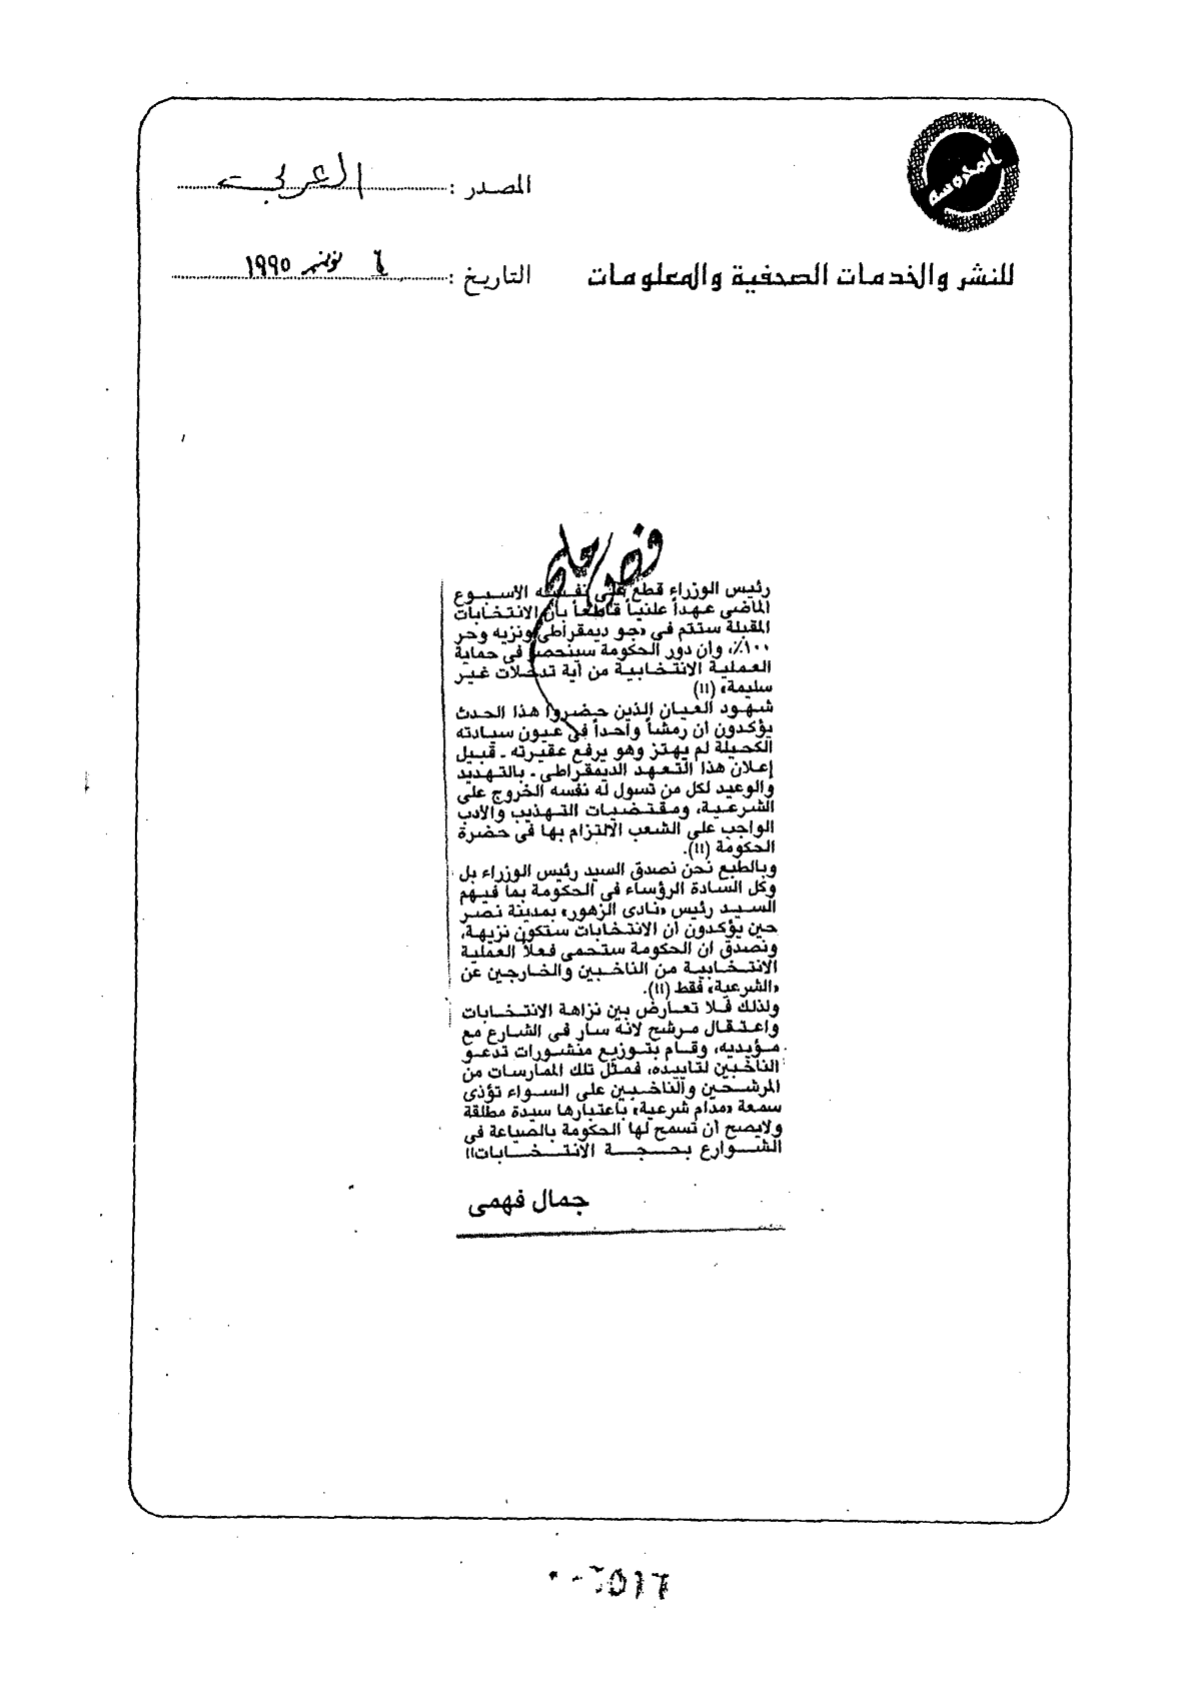 المصدر : العربي
التاريخ : ٦ نوفمبر ١٩٩٥
للنشر والخدمات الصحفية والمعلومات
رئيس الوزراء قطع على نفسه الأسبوع
الماضى عهداً علنياً قاطعاً بأن الانتخابات
المقبلة ستتم فى «جو ديمقراطى ونزيه وحر
١٠٠٪، وان دور الحكومة سينحصر فى حماية
العملية الانتخابية من أية تدخلات غير
سليمة» (!!)
شهود العيان الذين حضروا هذا الحدث
يؤكدون أن رمشاً واحداً فى عيون سيادته
الكحيلة لم يهتز وهو يرفع عقيرته ـ قبيل
إعلان هذا التعهد الديمقراطى ـ بالتهديد
والوعيد لكل من تسول له نفسه الخروج على
الشرعية، ومقتضيات التهذيب والأدب
الواجب على الشعب الالتزام بها فى حضرة
الحكومة (!!).
وبالطبع نحن نصدق السيد رئيس الوزراء بل
وكل السادة الرؤساء فى الحكومة بما فيهم
السيد رئيس «نادى الزهور» بمدينة نصر
حين يؤكدون أن الانتخابات ستكون نزيهة،
ونصدق أن الحكومة ستحمى فعلاً العملية
الانتخابية من الناخبين والخارجين عن
«الشرعية» فقط (!!).
ولذلك فلا تعارض بين نزاهة الانتخابات
واعتقال مرشح لأنه سار فى الشارع مع
مؤيديه، وقام بتوزيع منشورات تدعو
الناخبين لتأييده، فمثل تلك الممارسات من
المرشحين والناخبين على السواء تؤذى
سمعة «مدام شرعية» باعتبارها سيدة مطلقة
ولايصح أن تسمح لها الحكومة بالصياعة فى
الشوارع بحجة الانتخابات!!
جمال فهمى